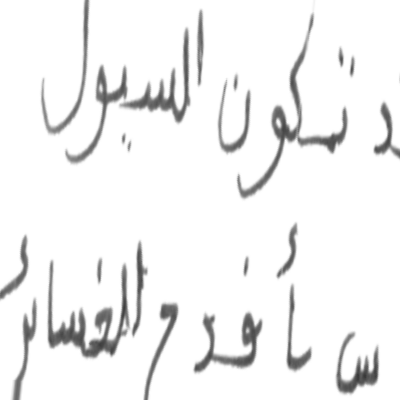 د تكون السيول
س أفدح الخسائر